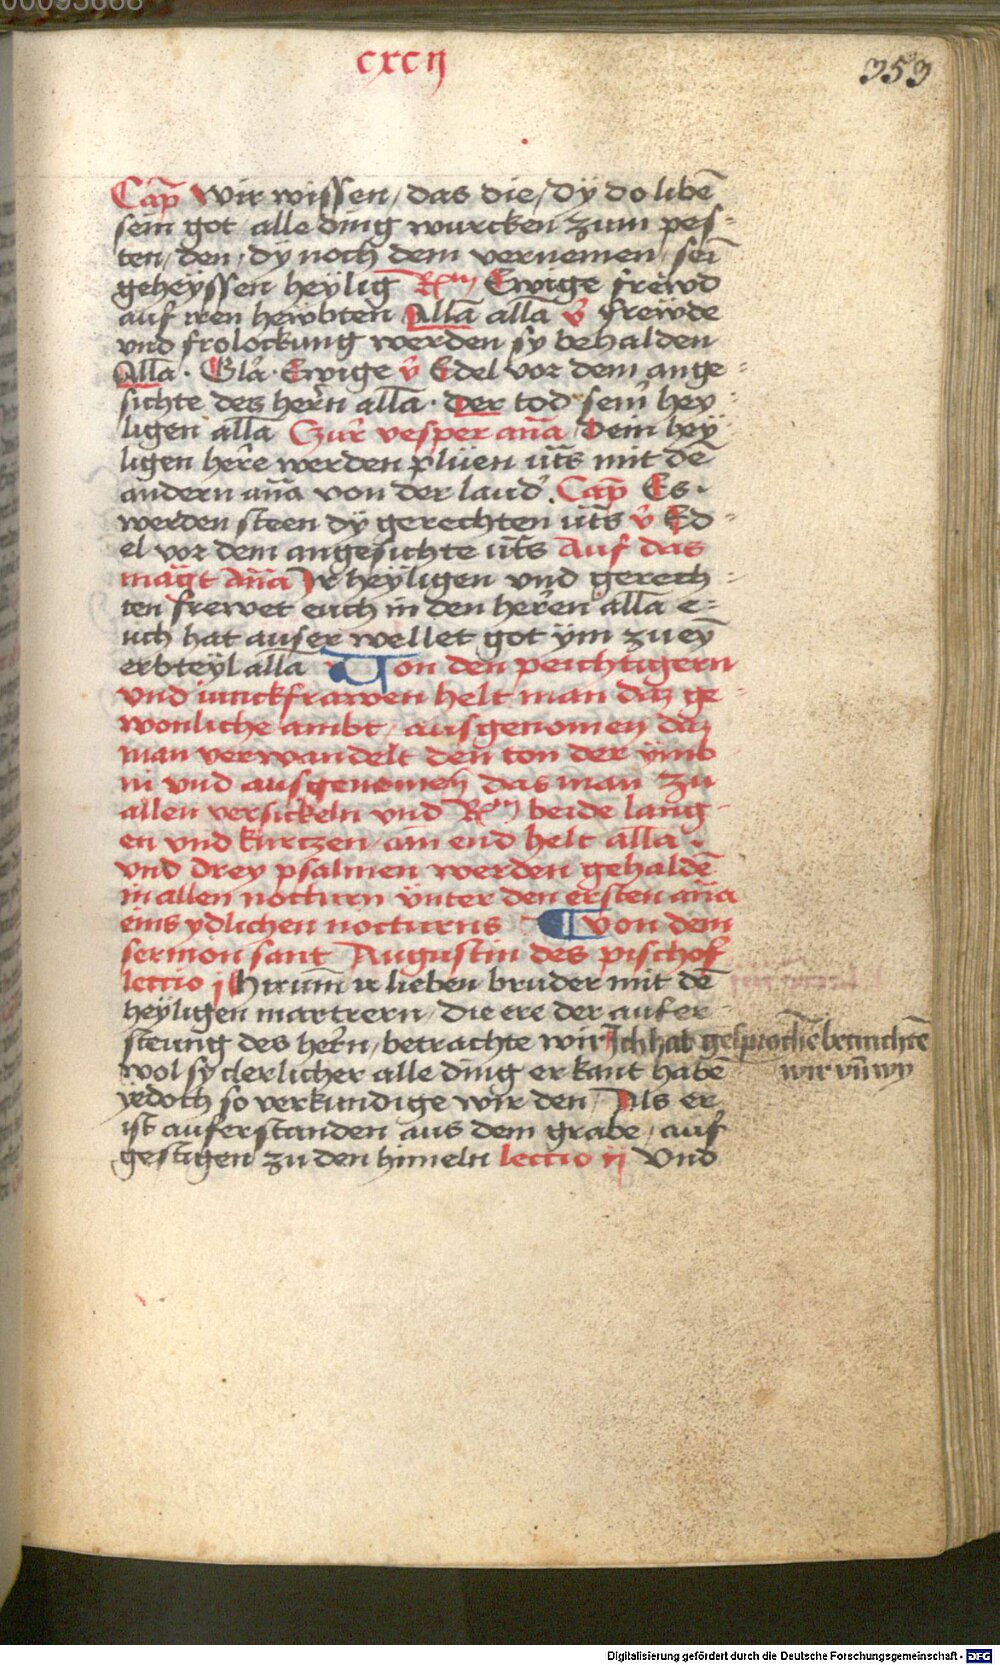 00095666
cxcij
353
Cap̄ Wir wissen / das die / dÿ do libē
sein got alle ding wurcken zum pes-
ten / den / dÿ noch dem vernemen / sei
geheÿssen heÿlig Rm Ewige frewd
auf iren hewbten Allā allā v̄ frewde
vnd frolockung werden sy behalden
Allā · Glā · Ewige v̄ Edel vor dem ange-
sichte des hern allā · Der tod seinr hey-
ligen allā Zur vesper an̄a Dein heÿ
ligen here werden plüen ut̄s mit dē
andern an̄a von der laud · Cap̄ Es ·
werden steen dÿ gerechten ut̄s v̄ Ed-
el vor dem angesichte ut̄s Auf das
magt An̄a Ir heÿligen vnd gerech-
ten frewet euch in den herren allā e-
uch hat auser wellet got ÿm zu eÿ
erbteÿl alla Von den peichtigern
vnd iunckfrawen helt man daz ge-
wonliche ambt / ausgenomen daz
man verwandelt den ton der ÿmp
ni vnd ausgenomen das man zu
allen versickeln vnd Rm beide lang-
en vnd kurtzen / am end helt allā ·
vnd drey psalmen werden gehaldē
in allen nocturn ÿnter den ersten an̄a
eins ydlichen nocturns ¶ von dem
sermon sant Augustin des pischof
lectio j Hirum̄ ir lieben bruder mit dē
heÿligen martrern / die ere der aufer-
steung des hern / betrachte wir Ich hab gesprochē betrachtē
wol sy clerlicher alle ding erkant habē wir vn̄ wy
ÿedoch so verkundige wir den / Als er
ist auferstanden aus dem grabe / auf
gestigen zu den himeln lectio ij Vnd
Digitalisierung gefördert durch die Deutsche Forschungsgemeinschaft - DFG